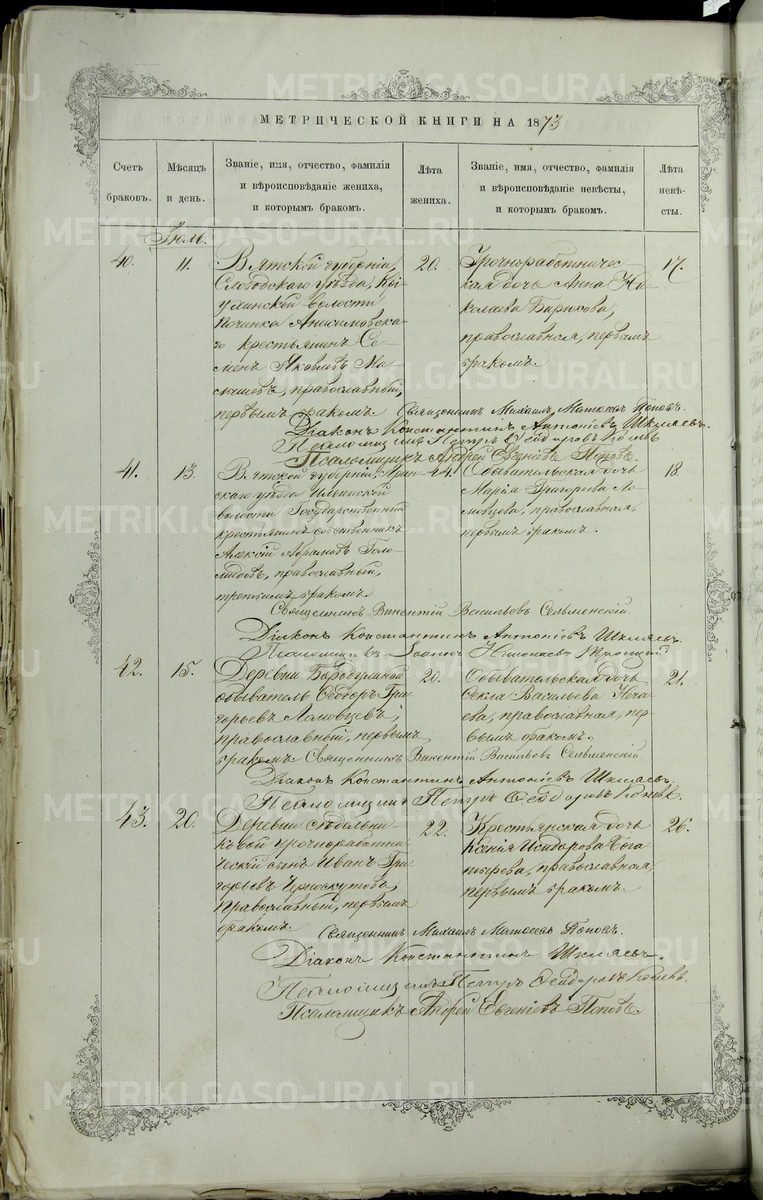 METRIKI.GASO-URAL.RU
МЕТРИЧЕСКОЙ КНИГИ НА 1873
Счетъ браковъ.
Мѣсяцъ и день.
Званіе, имя, отчество, фамилія
и вѣроисповѣданіе жениха,
и которымъ бракомъ.
Лѣта жениха.
Званіе, имя, отчество, фамилія
и вѣроисповѣданіе невѣсты,
и которымъ бракомъ.
Лѣта невѣсты.
Іюль.
40.
11.
Вятской губерніи,
Слободскаго уѣзда,
волости
Починка
крестьянинъ Се-
менъ Яковлевъ Ма-
лышевъ, православный,
первымъ бракомъ.
20.
Урочноработничес-
кая дочь Анна Ни-
колаева Бирюкова,
православная, первымъ
бракомъ.
17.
Священникъ Михаилъ Матѳеевъ Поповъ.
Діаконъ Константинъ Антоніевъ Шкляевъ.
Псаломщикъ Петръ Ѳеодоровъ
Псаломщикъ Андрей Евгеніевъ Поповъ.
41.
13.
Вятской губерніи,
скаго уѣзда Ильинской
волости Государственный
крестьянинъ собственникъ
Алексій Абрамовъ
православный,
третьимъ бракомъ.
44.
Обывательская дочь
Марія Григорьева Ло-
мовцева, православная,
первымъ бракомъ.
18
Священникъ Викентій Васильевъ Сельменскій.
Діаконъ Константинъ Антоніевъ Шкляевъ.
Псаломщикъ Іоаннъ Николаевъ Троицкій
42.
15.
Деревни
обыватель Ѳеодоръ Гри-
горьевъ Ломовцевъ,
православный, первымъ
бракомъ.
20.
Обывательская дочь
Ѳекла Васильева Неча-
ева, православная, пер-
вымъ бракомъ.
21.
Священникъ Викентій Васильевъ Сельменскій.
Діаконъ Константинъ Антоніевъ Шкляевъ.
Псаломщикъ Петръ Ѳеодоровъ
43.
20.
Деревни Сѣдельни-
ковой урочноработни-
ческій сынъ Иванъ Гри-
горьевъ Черноскутовъ,
Православный, первымъ
бракомъ.
22.
Крестьянская дочь
Ксенія Исидорова Бога-
тырева, православная,
первымъ бракомъ.
26.
Священникъ Михаилъ Матѳеевъ Поповъ.
Діаконъ Константинъ Шкляевъ.
Псаломщикъ Петръ Ѳеодоровъ
Псаломщикъ Андрей Евгеніевъ Поповъ.